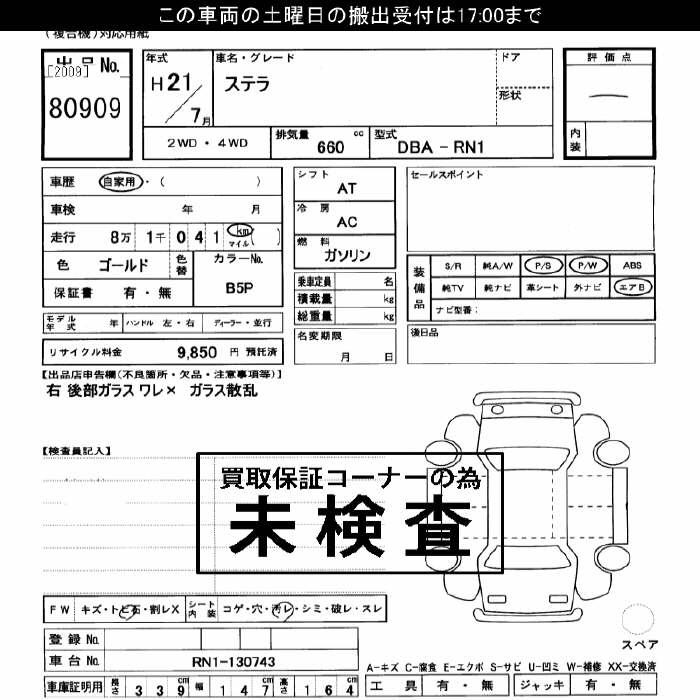 この車両の土曜日の搬出受付は17:00まで
(複合機)対応用紙
出品 No.
[2009]
80909
年式
H21/7月
車名・グレード
ステラ
ドア
形状
評価点
内装
2WD・4WD
排気量 cc
660
型式
DBA-RN1
車歴 自家用・( )
車検 年 月
走行 8万 1千 0 4 1 km マイル ( )
色 ゴールド 色替
カラーNo.
B5P
保証書 有・無
シフト
AT
冷房
AC
燃料
ガソリン
乗車定員 名
積載量 kg
総重量 kg
セールスポイント
装備品
S/R 純A/W P/S P/W ABS
純TV 純ナビ 革シート 外ナビ エアB
ナビ型番:
モデル年式 年 ハンドル 左・右 ディーラー・並行
名変期限
月 日
後日品
リサイクル料金 9,850 円 預託済
【出品店申告欄(不良箇所・欠品・注意事項等)】
右 後部ガラス ワレ× ガラス散乱
【検査員記入】
買取保証コーナーの為
未検査
FW キズ・トビ石・割レX シート内装 コゲ・穴・汚レ・シミ・破レ・スレ
登録 No.
車台 No. RN1-130743
スペア
A-キズ C-腐食 E-エクボ S-サビ U-凹ミ W-補修 XX-交換済
車庫証明用 長さ 3 3 9 cm 幅 1 4 7 cm 高さ 1 6 4 cm
工具 有・無 ジャッキ 有・無